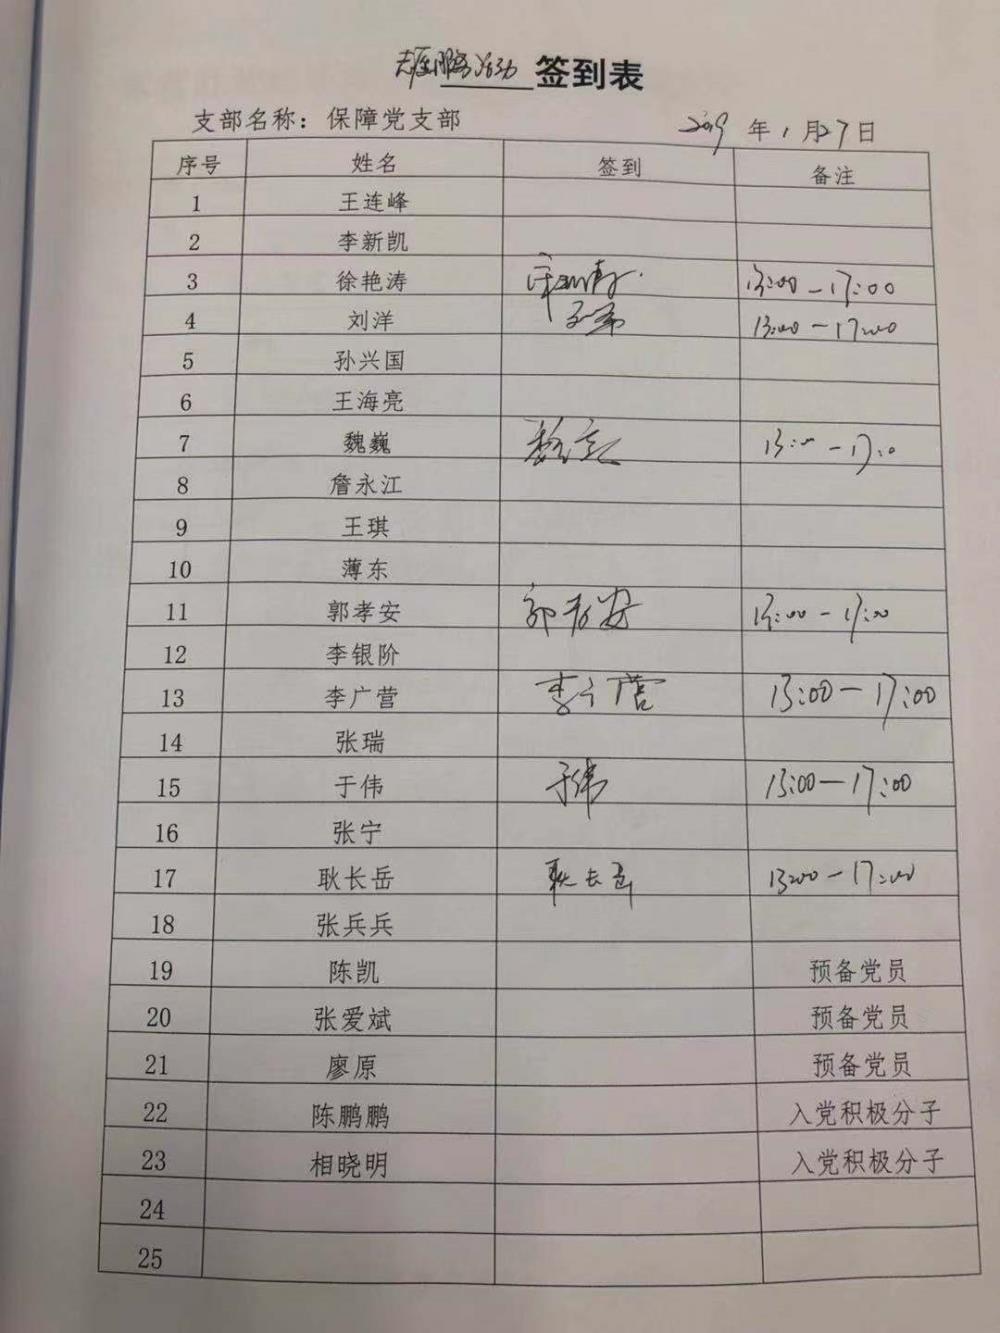 志愿服务活动 签到表
支部名称：保障党支部 2019 年 1 月 27 日
序号 姓名 签到 备注
1 王连峰
2 李新凯
3 徐艳涛 13:00-17:00
4 刘洋 13:00-17:00
5 孙兴国
6 王海亮
7 魏巍 魏巍 13:00-17:00
8 詹永江
9 王琪
10 薄东
11 郭孝安 郭孝安 13:00-17:00
12 李银阶
13 李广营 李广营 13:00-17:00
14 张瑞
15 于伟 于伟 13:00-17:00
16 张宁
17 耿长岳 耿长岳 13:00-17:00
18 张兵兵
19 陈凯 预备党员
20 张爱斌 预备党员
21 廖原 预备党员
22 陈鹏鹏 入党积极分子
23 相晓明 入党积极分子
24
25